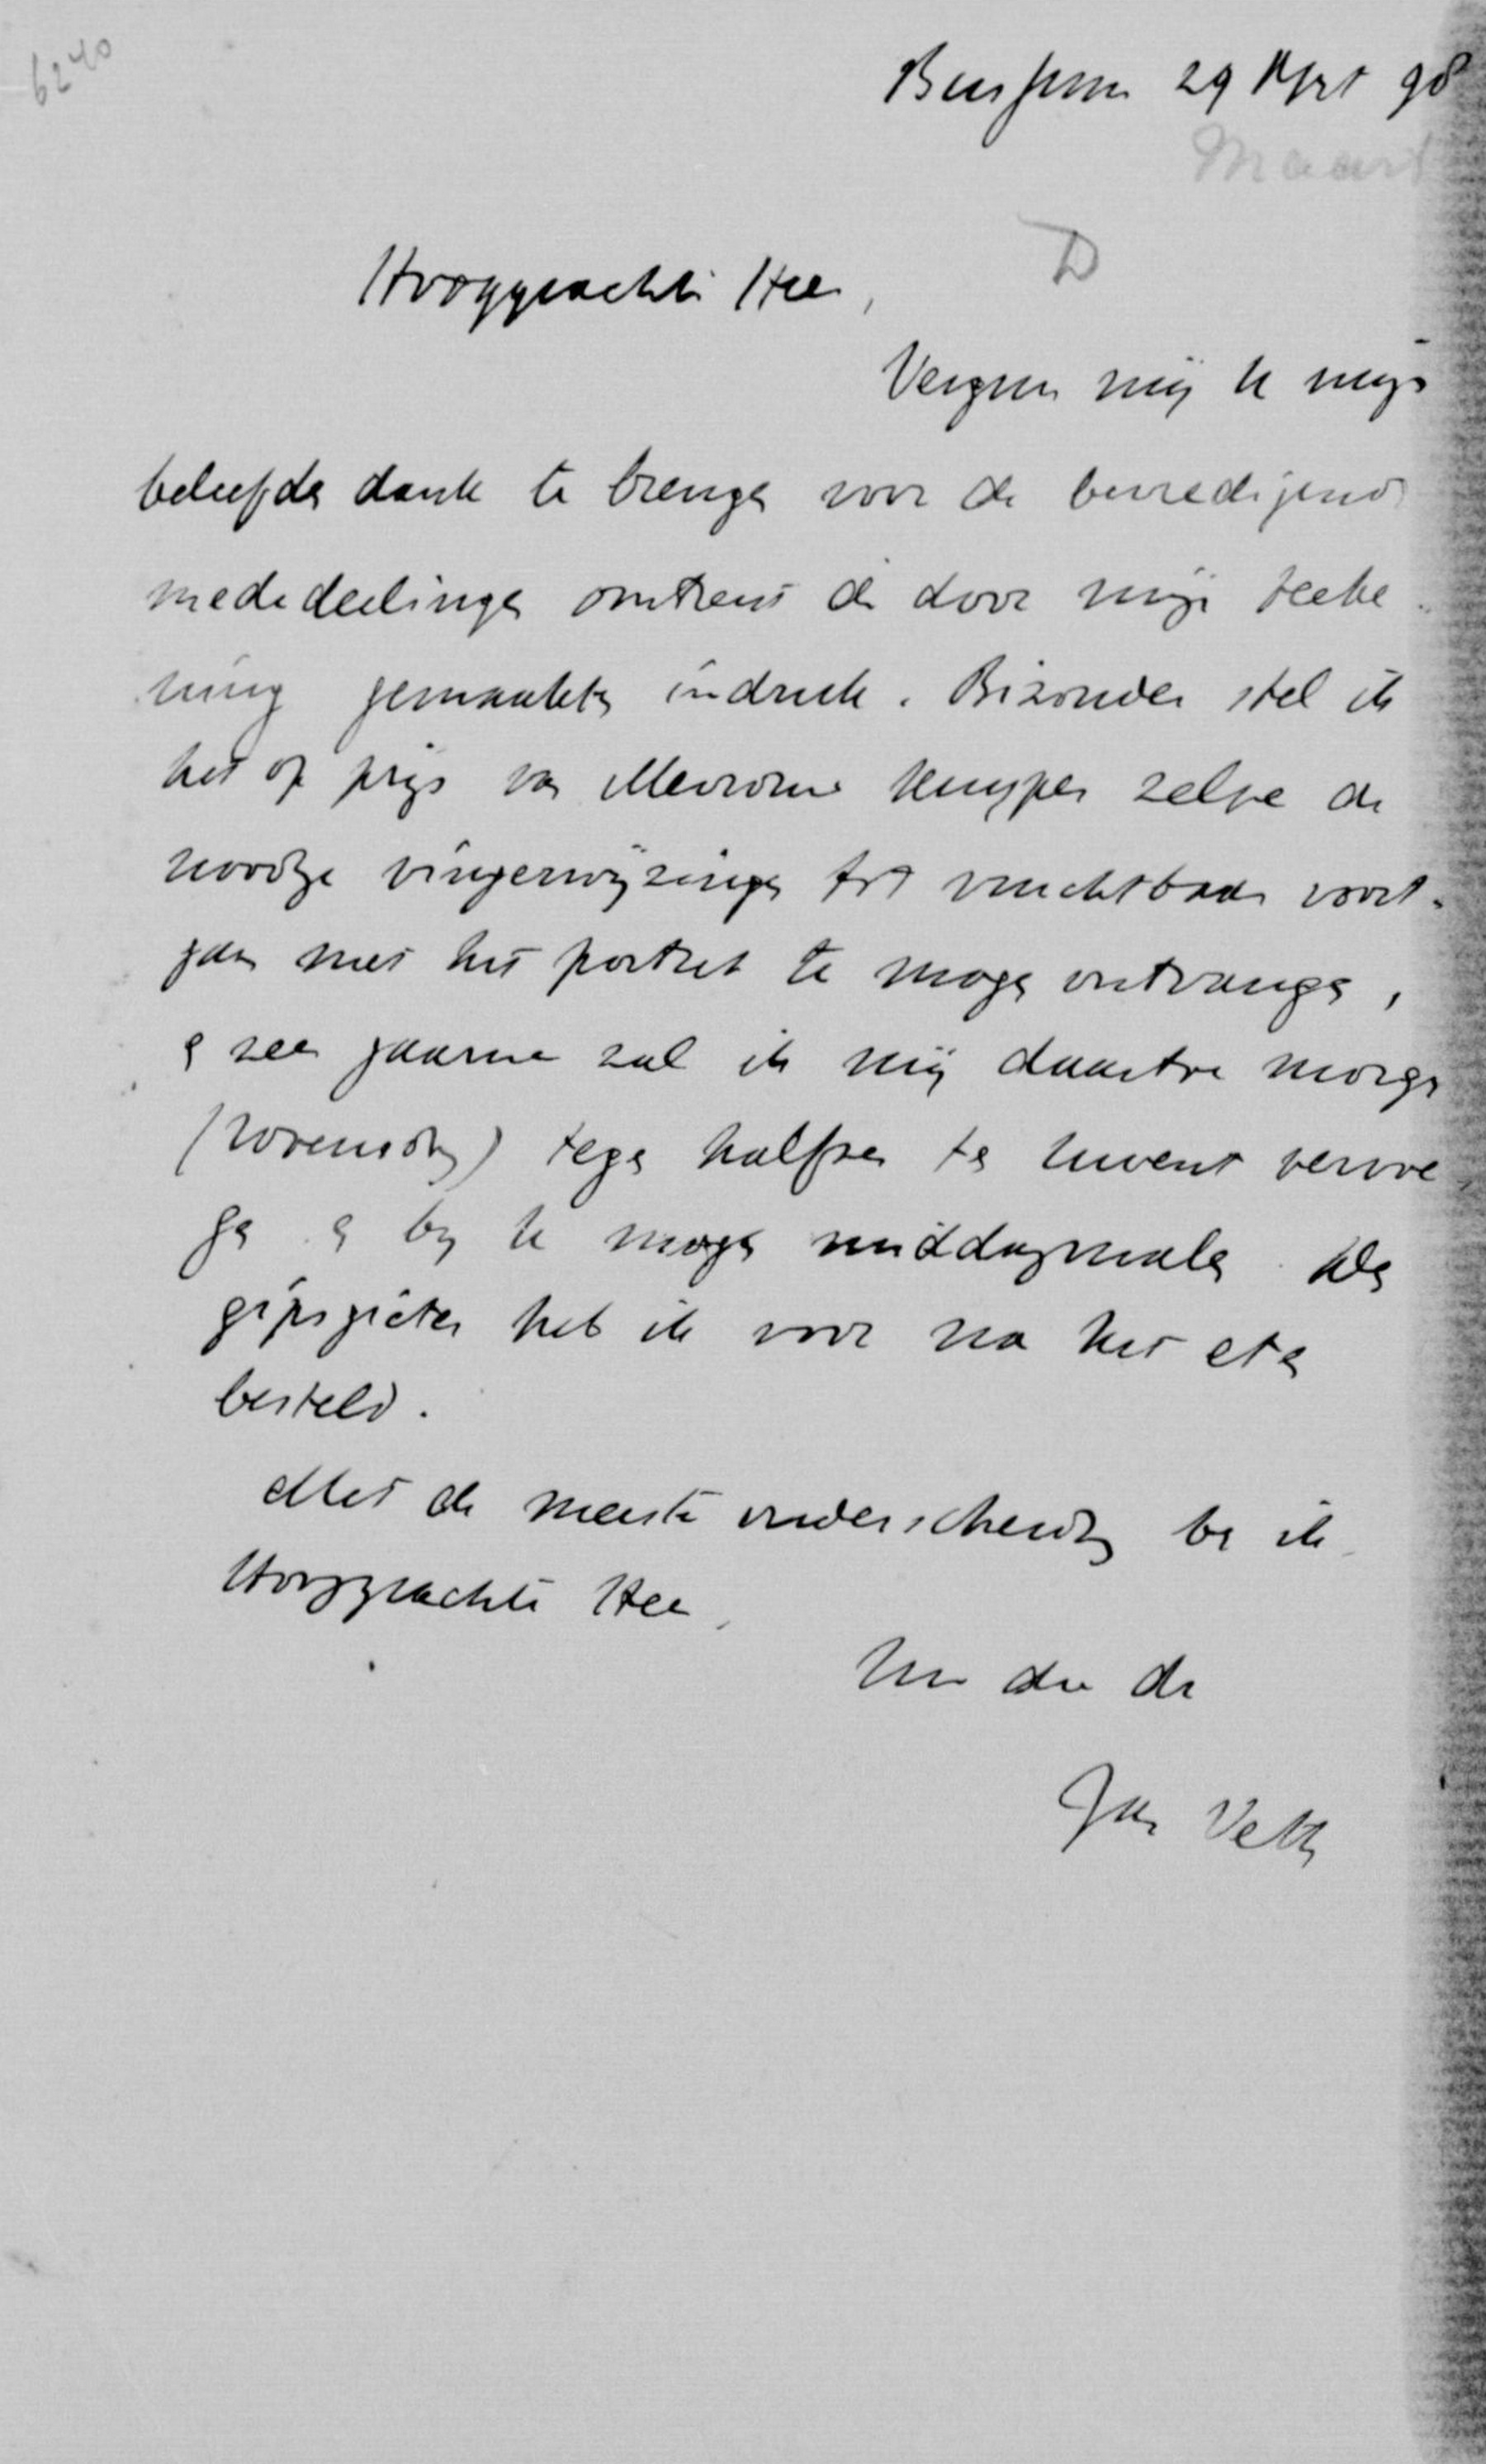 6240
Bussum 29 Mrt 98
Maart
D
Hooggeachte Heer,
Vergun mij U mijn
beleefden dank te brengen voor de bevredigende
mededeelingen omtrent de door mijn teeke-
ning gemaakten indruk. Bizonder stel ik
het op prijs van Mevrouw Kuyper zelve de
noodige vingerwijzingen tot vruchtbaar voort-
gaan met het portret te mogen ontvangen,
en zeer gaarne zal ik mij daartoe morgen
(woensdag) tegen halfzes te Uwent vervoe-
gen en bij U mogen middagmalen. Den
gipsgieter heb ik voor na het eten
besteld.
Met de meeste onderscheiding ben ik
Hooggeachte Heer,
Uw dw dr
Jan Veth